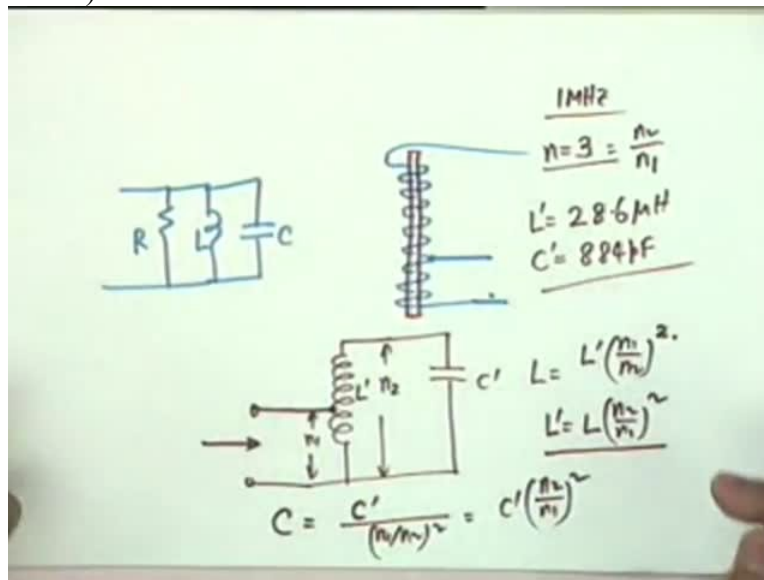 1MHz
n=3 = n2/n1
L'= 28.6µH
C'= 884pF
R L C
L' n2 C'
n1
L= L'(n1/n2)^2.
L'= L(n2/n1)^2
C = C'/(n1/n2)^2 = C'(n2/n1)^2